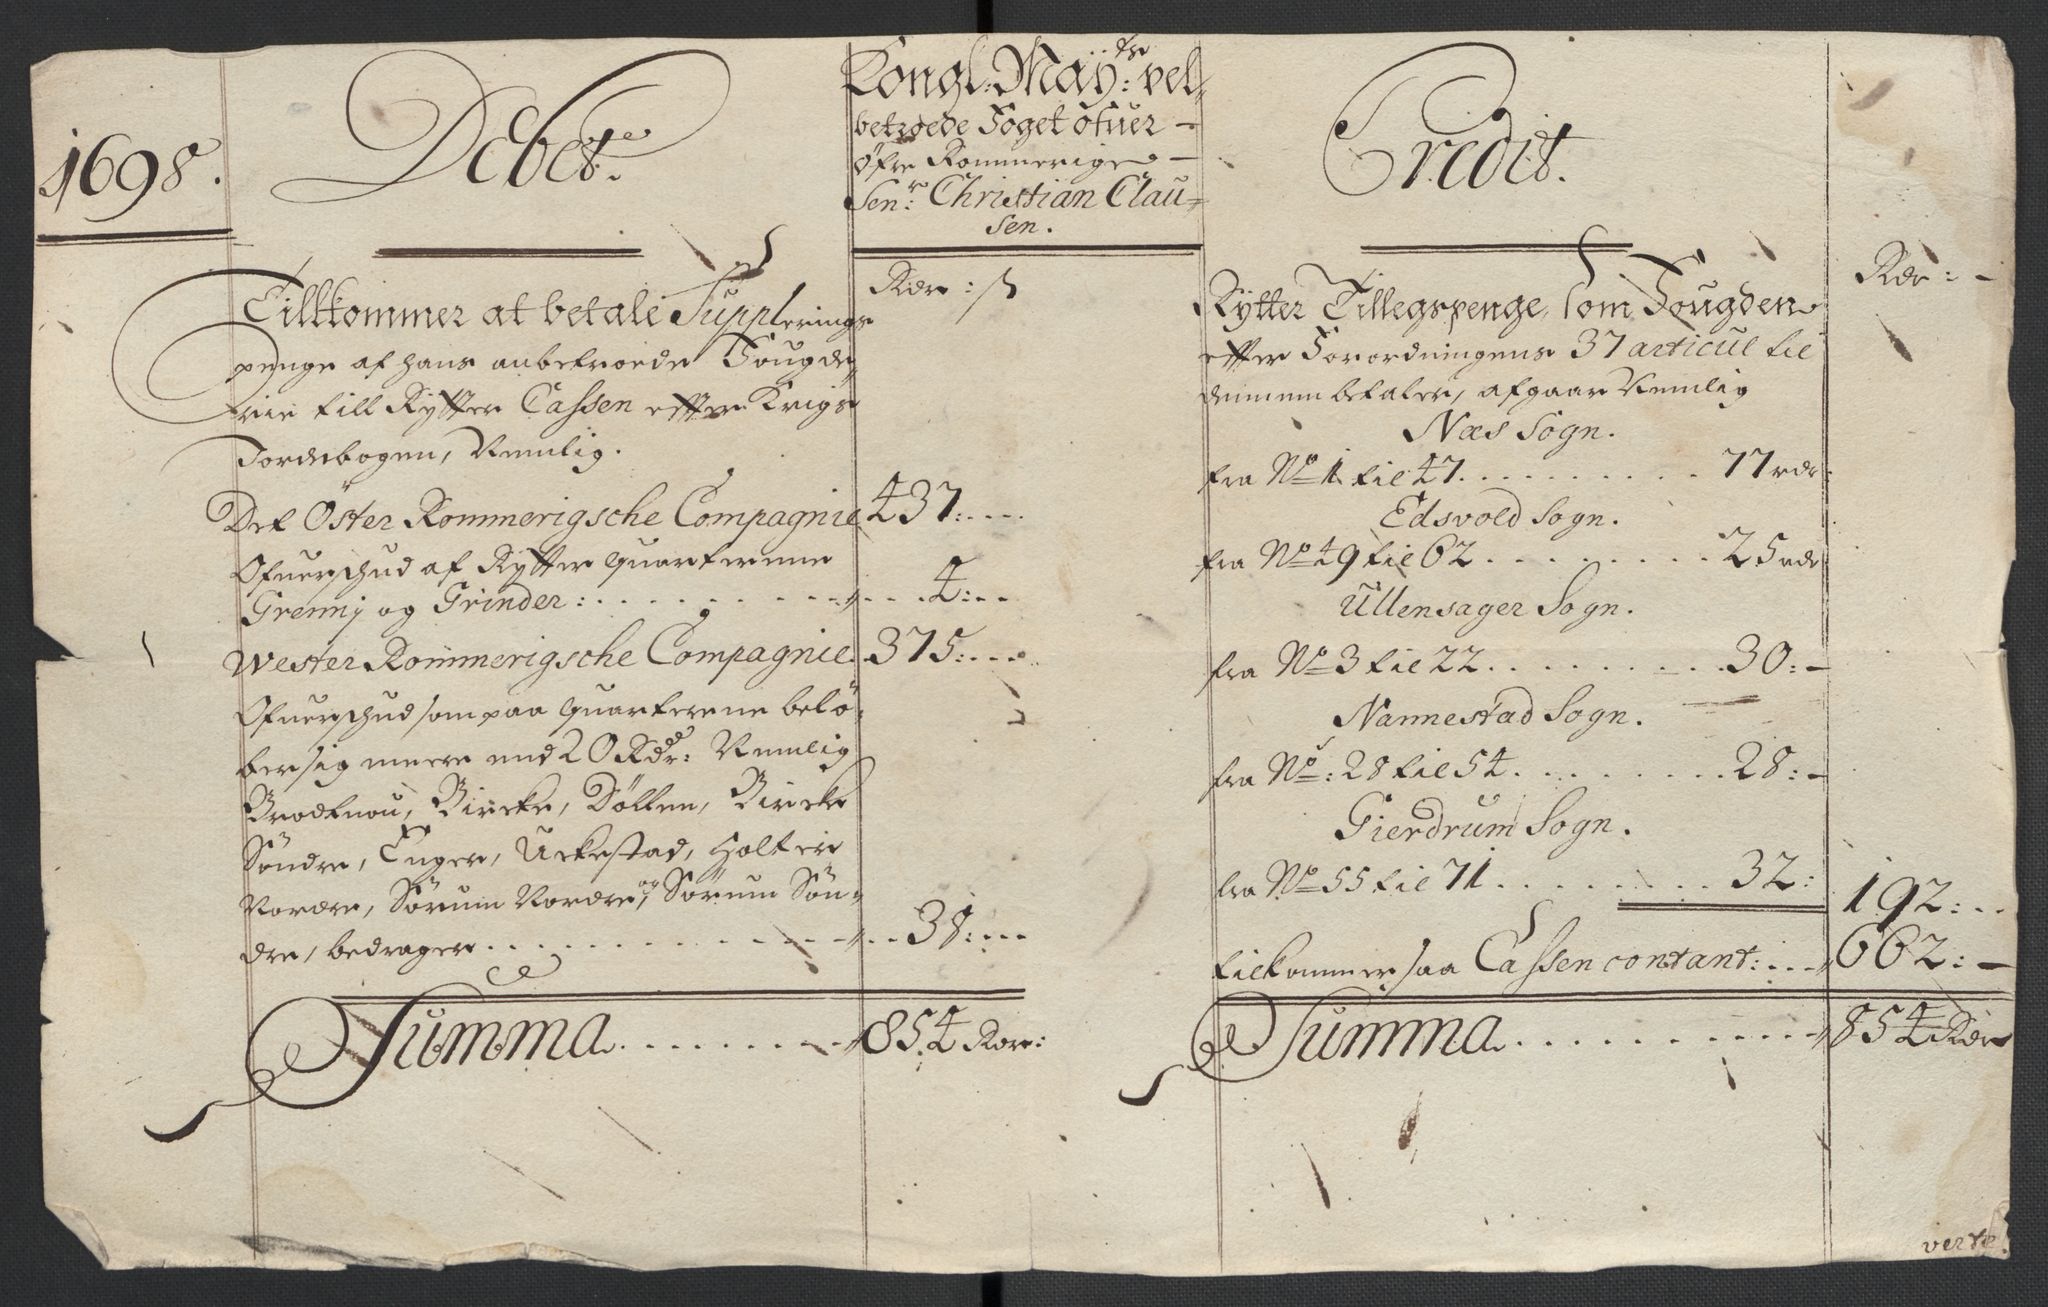 1698.
Debet.
Kongl: Maÿ:tts vel-
betroede Foget ofuer
Øfre Rommerige
Senr: Christian Clau-
sen.
Credit.
Rdr : ß
Tillkommer at betale Supplerings
penge af hans anbetroede Fougde-
rie till Rÿtter Cassen efter Krigs
Jordebogen, Nemlig.
Det Öster Rommerigsche Compagnie 437:
Ofuerschud af Rÿtter quarterene
Grennj og Grinder: 4:
Wester Rommerigsche Compagnie 375:
Ofuerschud som paa quarterene belø-
ber sig meere end 20 Rdr: Nemlig
Bircke, Dølken, Bircke
Söndre, Enger, Uckestad, Holter
Nordre, Sörum Nordre, og Sörum Sön-
dre, bedrager 38:
Summa 854 Rdr:
Rdr :
Rytter Tillegspenge, som Fougden
efter Forordningens 37 articul til
dennem betaler, afgaar Nemlig
Næs Sogn.
fra No 1 til 47. 77 rdr:
Edsvold Sogn.
fra No 49 til 62 25 rdr
Ullensager Sogn.
fra No 3 til 22 30:
Nannestad Sogn.
fra No: 28 til 54 28:
Gierdrum Sogn.
fra No 55 til 71 32: 192:
tilkommer saa Cassen contant: 662:
Summa 854 Rdr
verte.